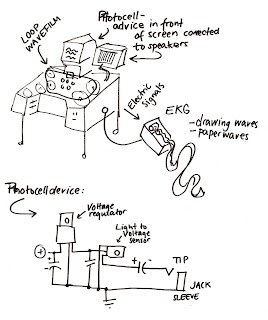 Photocell -
advice in front
of screen connected
to speakers
LOOP
WAVEFILM
Electric
Signals
EKG
- drawing waves
- paperwaves
Photocell device:
Voltage
regulator
Light to
Voltage
sensor
+
-
+
-
TIP
JACK
SLEEVE